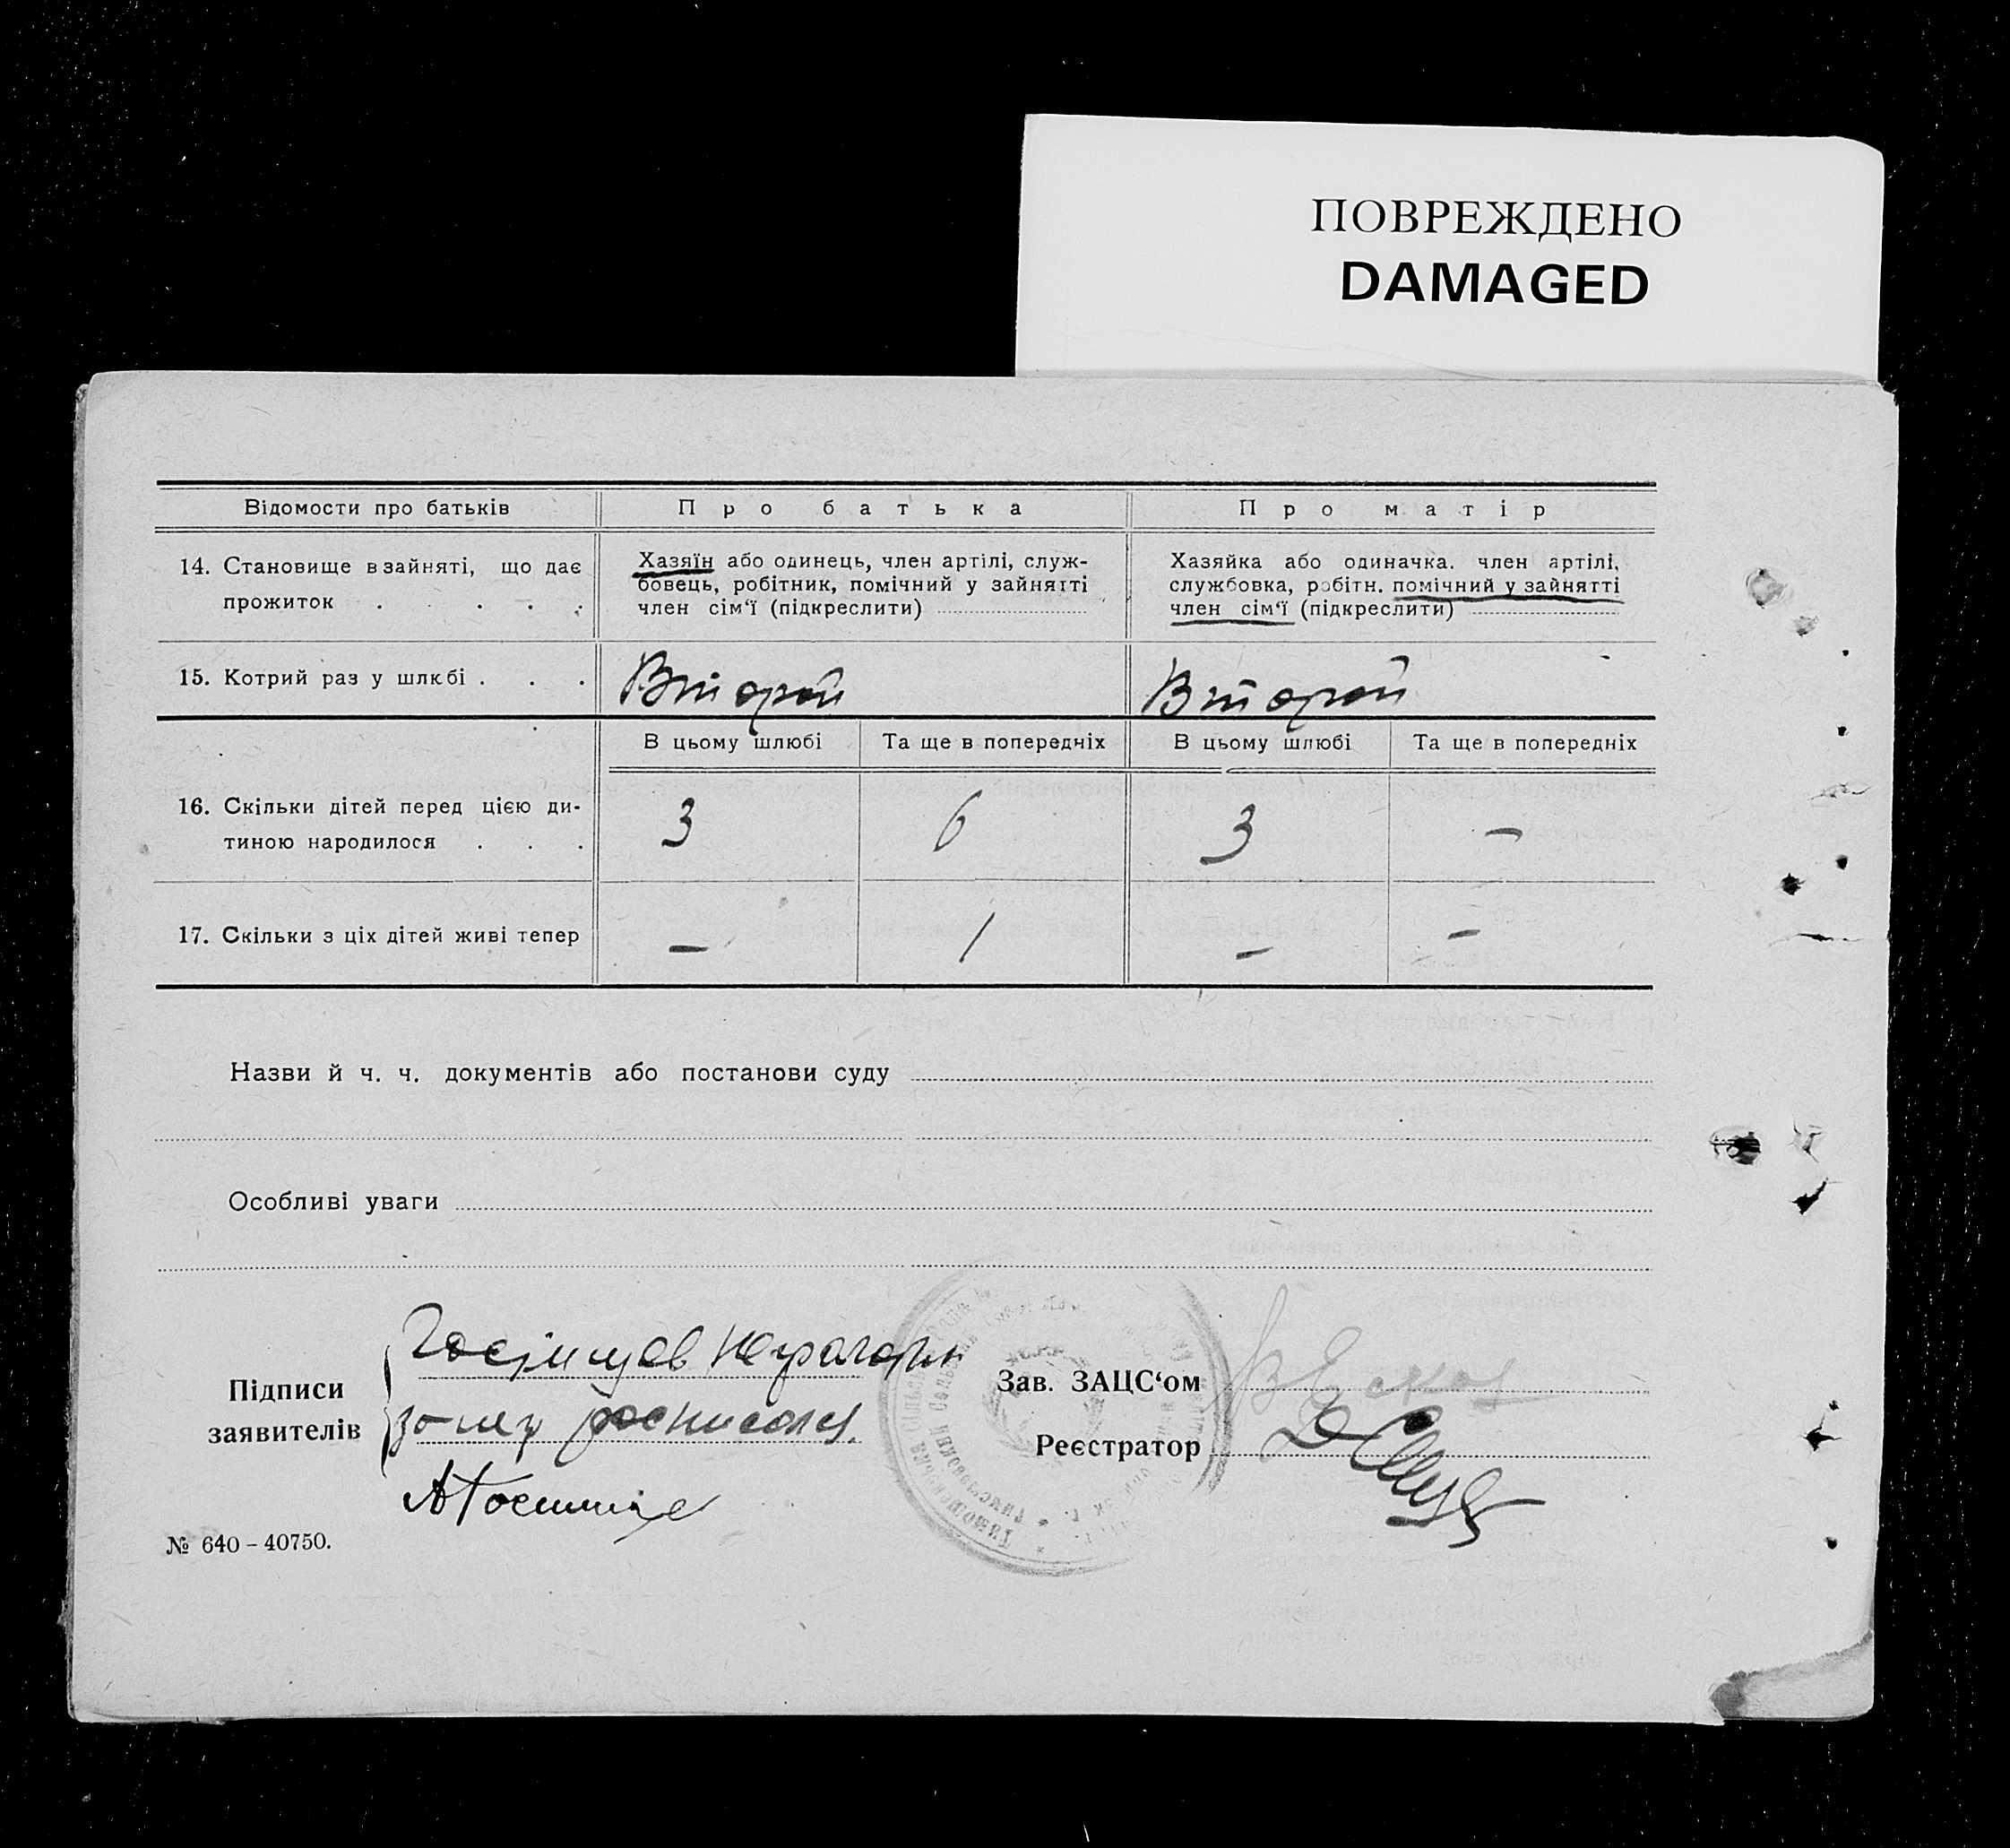 ПОВРЕЖДЕНО
DAMAGED
Відомости про батьків
Про батька
Про матір
14. Становище в зайняті, що дає
прожиток . . . . .
Хазяїн або одинець, член артілі, служ-
бовець, робітник, помічний у зайнятті
член сім‘ї (підкреслити)
Хазяйка або одиначка. член артілі,
службовка, робітн. помічний у зайнятті
член сім‘ї (підкреслити)
15. Котрий раз у шлюбі . . .
Второй
Второй
В цьому шлюбі
Та ще в попередніх
В цьому шлюбі
Та ще в попередніх
16. Скільки дітей перед цією ди-
тиною народилося . . .
3
6
3
–
17. Скільки з ціх дітей живі тепер
–
1
–
–
Назви й ч. ч. документів або постанови суду
Особливі уваги
Підписи
заявителів
Зав. ЗАЦС‘ом
Реєстратор
№ 640 – 40750.